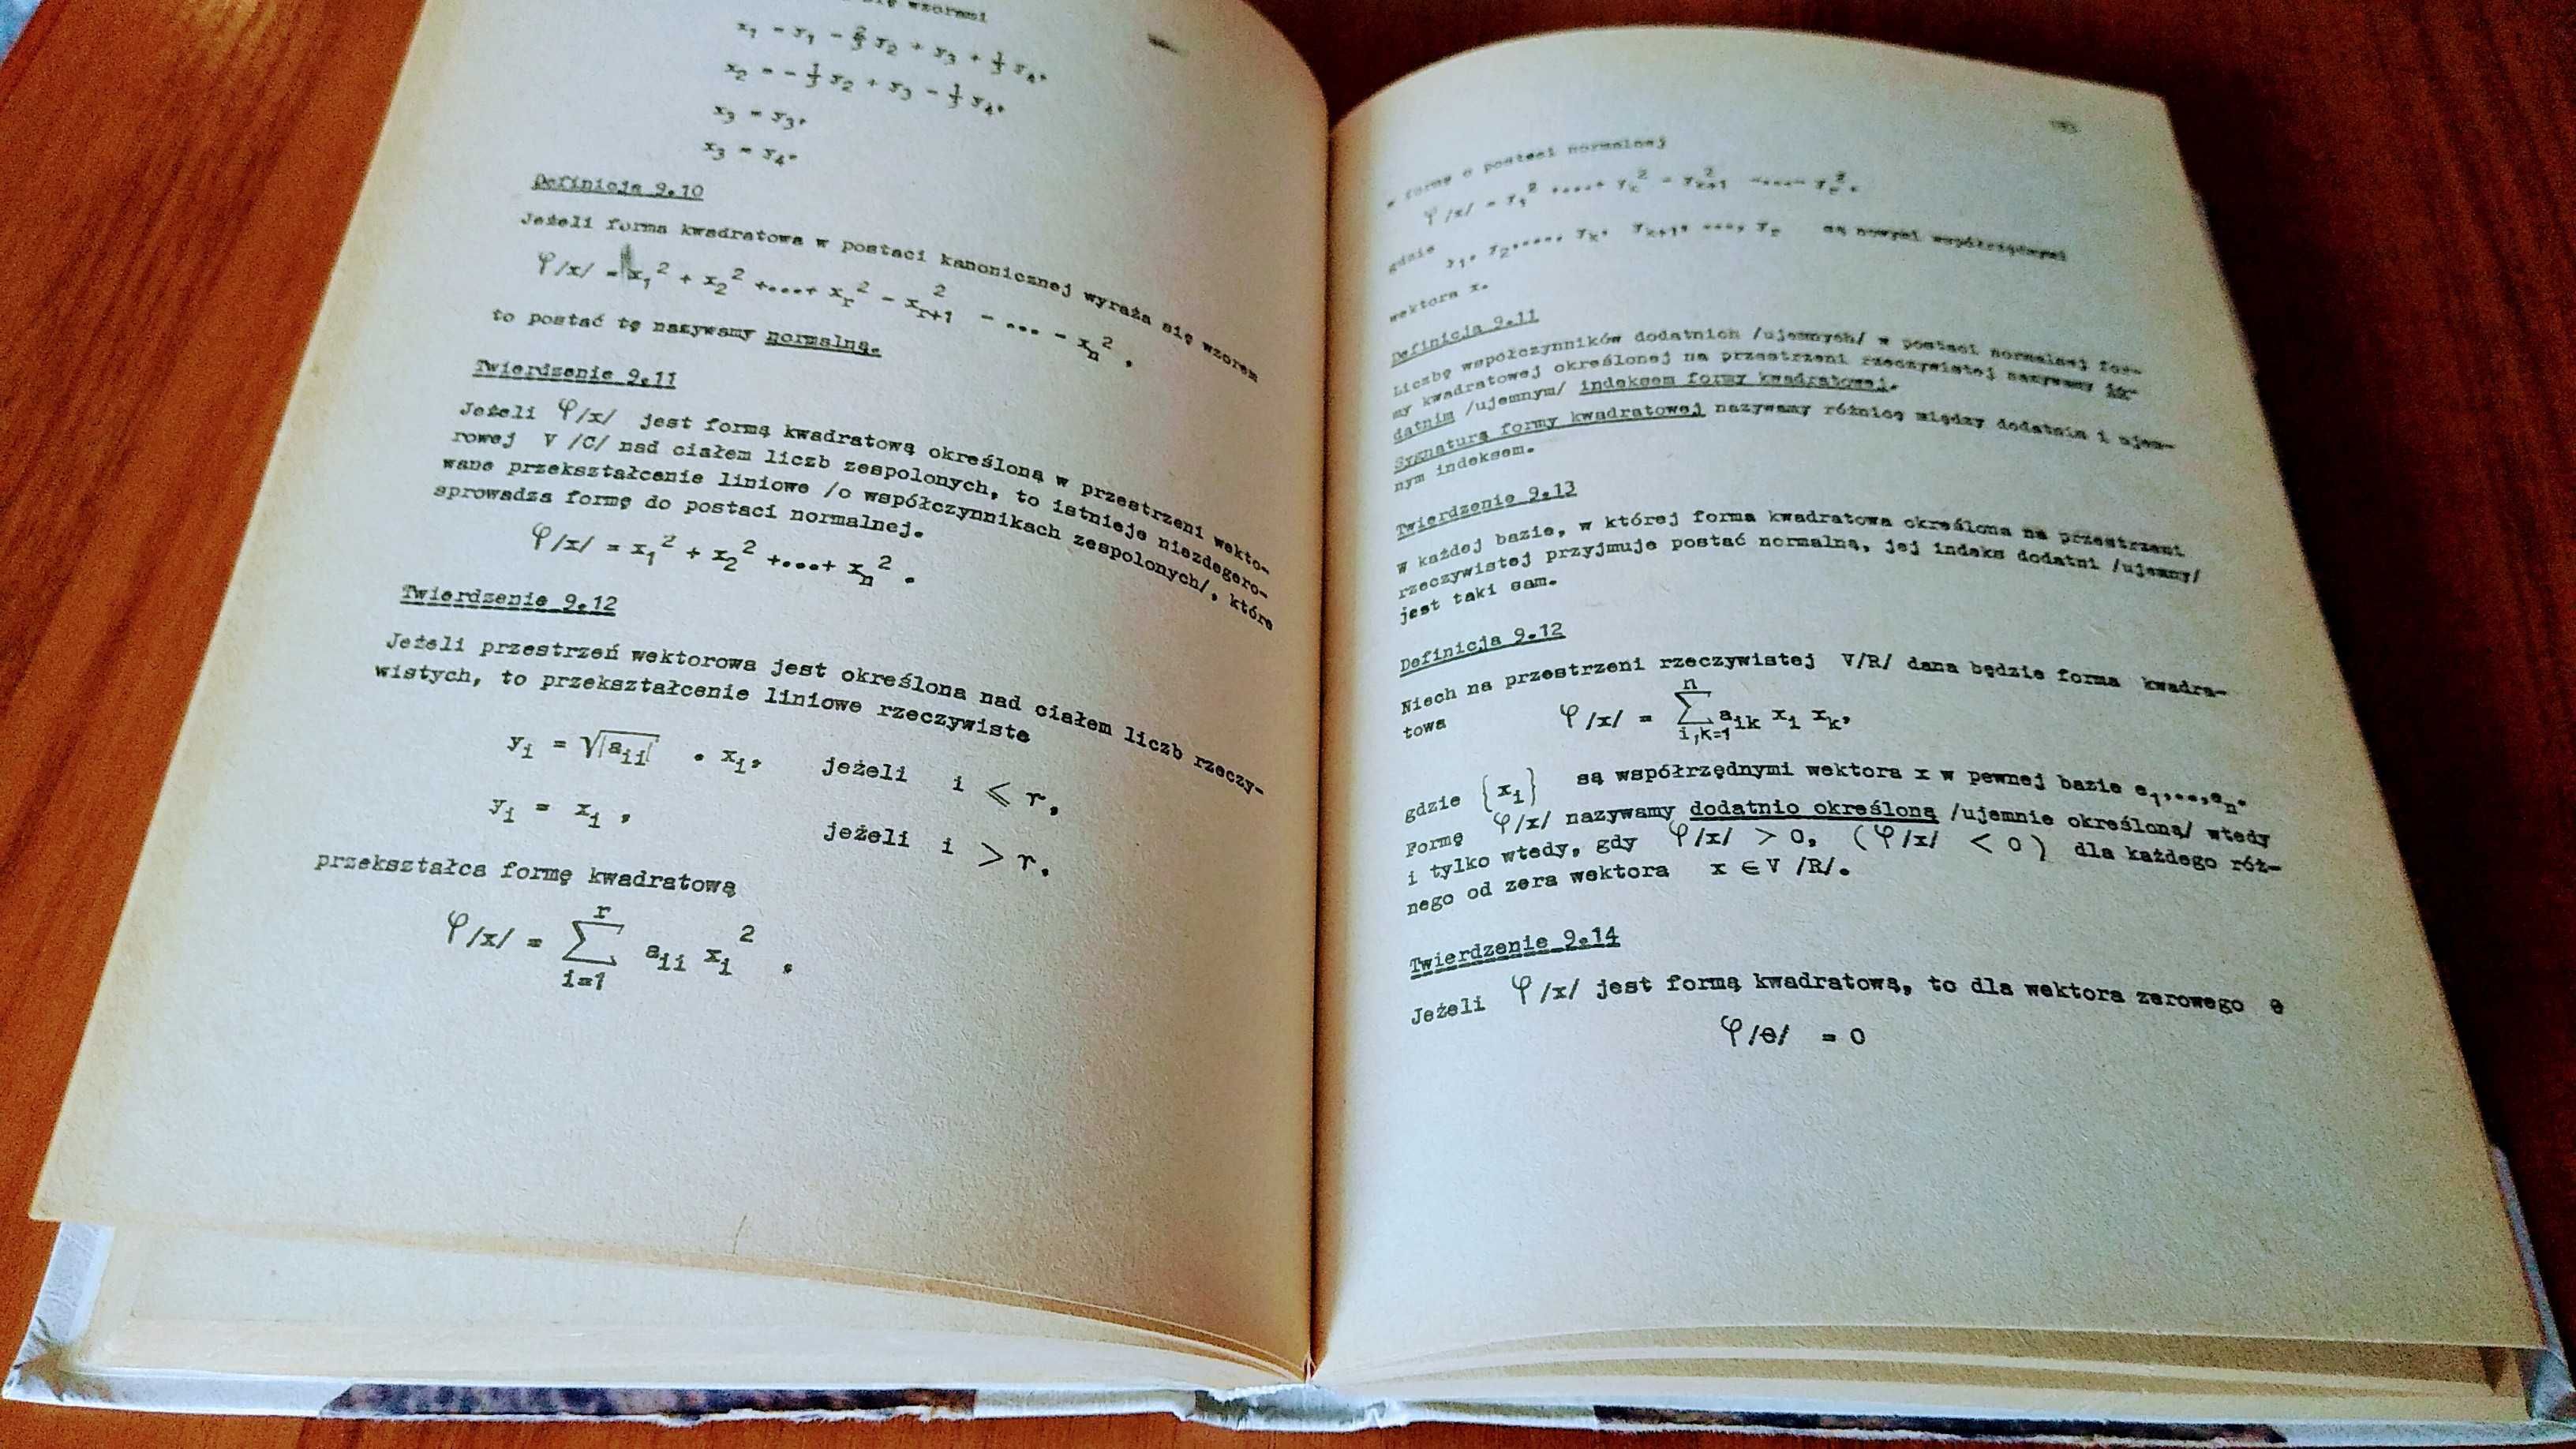 się wzorami
x₁ = y₁ - 2/3 y₂ + y₃ + 1/3 y₄,
x₂ = - 1/3 y₂ + y₃ - 1/3 y₄,
x₃ = y₃,
x₃ = y₄.
Definicja 9.10
Jeżeli forma kwadratowa w postaci kanonicznej wyraża się wzorem
φ/x/ = x₁² + x₂² +....+ xᵣ² - xᵣ₊₁² - ... - xₙ² ,
to postać tę nazywamy normalną.
Twierdzenie 9.11
Jeżeli φ/x/ jest formą kwadratową określoną w przestrzeni wekto-
rowej V /C/ nad ciałem liczb zespolonych, to istnieje niezdegero-
wane przekształcenie liniowe /o współczynnikach zespolonych/, które
sprowadza formę do postaci normalnej.
φ/x/ = x₁² + x₂² +....+ xₙ² .
Twierdzenie 9.12
Jeżeli przestrzeń wektorowa jest określona nad ciałem liczb rzeczy-
wistych, to przekształcenie liniowe rzeczywiste
yᵢ = √|aᵢᵢ| . xᵢ, jeżeli i ⩽ r,
yᵢ = xᵢ , jeżeli i > r.
przekształca formę kwadratową
r
φ/x/ = Σ aᵢᵢ xᵢ² ,
i=1
w formę o postaci normalnej
φ/x/ = y₁² +....+ yₖ² - yₖ₊₁² -....- yᵣ² .
gdzie y₁, y₂,...., yₖ, yₖ₊₁, ..., yᵣ są nowymi współrzędnymi
wektora x.
Definicja 9.11
Liczbę współczynników dodatnich /ujemnych/ w postaci normalnej for-
my kwadratowej określonej na przestrzeni rzeczywistej nazywamy do-
datnim /ujemnym/ indeksem formy kwadratowej.
Sygnaturą formy kwadratowej nazywamy różnicę między dodatnim i ujem-
nym indeksem.
Twierdzenie 9.13
W każdej bazie, w której forma kwadratowa określona na przestrzeni
rzeczywistej przyjmuje postać normalną, jej indeks dodatni /ujemny/
jest taki sam.
Definicja 9.12
Niech na przestrzeni rzeczywistej V/R/ dana będzie forma kwadra-
n
towa φ/x/ = Σ aᵢₖ xᵢ xₖ,
i,k=1
gdzie {xᵢ} są współrzędnymi wektora x w pewnej bazie e₁,...,eₙ.
Formę φ/x/ nazywamy dodatnio określoną /ujemnie określoną/ wtedy
i tylko wtedy, gdy φ/x/ > 0, (φ/x/ < 0) dla każdego róż-
nego od zera wektora x ∈ V /R/.
Twierdzenie 9.14
Jeżeli φ/x/ jest formą kwadratową, to dla wektora zerowego θ
φ/θ/ = 0